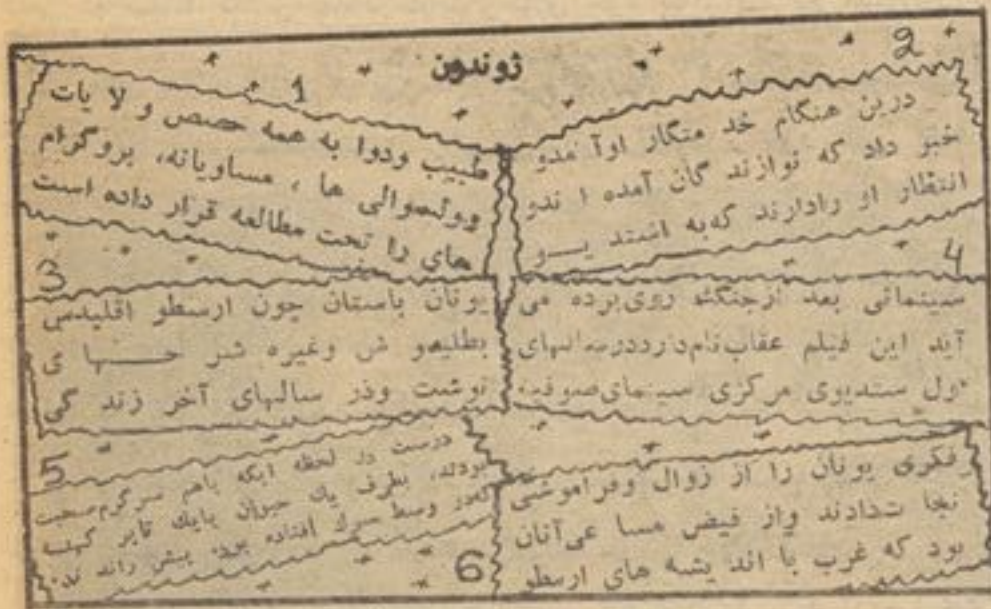 ژوندون
1
طبیب ودوا به همه حصص و لا یات
وولسوالی ها ، مساویانه، پروگرام
های را تحت مطالعه قرار داده است
2
درین هنگام خد متگار اوآ مدو
خبر داد که نوازند گان آمده ا ندو
انتظار او رادارند که به اشتد یــو
3
یونان باستان چون ارسطو اقلیدس
بطلیمو ش وغیره شر حــــها ی
نوشت ودر سالهای آخر زند گی
4
سینمائی بعد ازجنگ روی‌برده می
آید این فیلم عقاب‌نام‌دارددرسالهای
ول ستدیوی مرکزی سینمای‌صوفیه
5
درست در لحظه ایکه باهم سرگرم‌صحبت
بودند، بطرف یک حیوان بایک تایر کهنه
که‌در وسط سرک افتاده بود پیش راند ند
6
فکری یونان را از زوال وفراموشی
نجا ت‌دادند واز فیض مسا عی‌آنان
بود که غرب با اند یشه های ارسطو